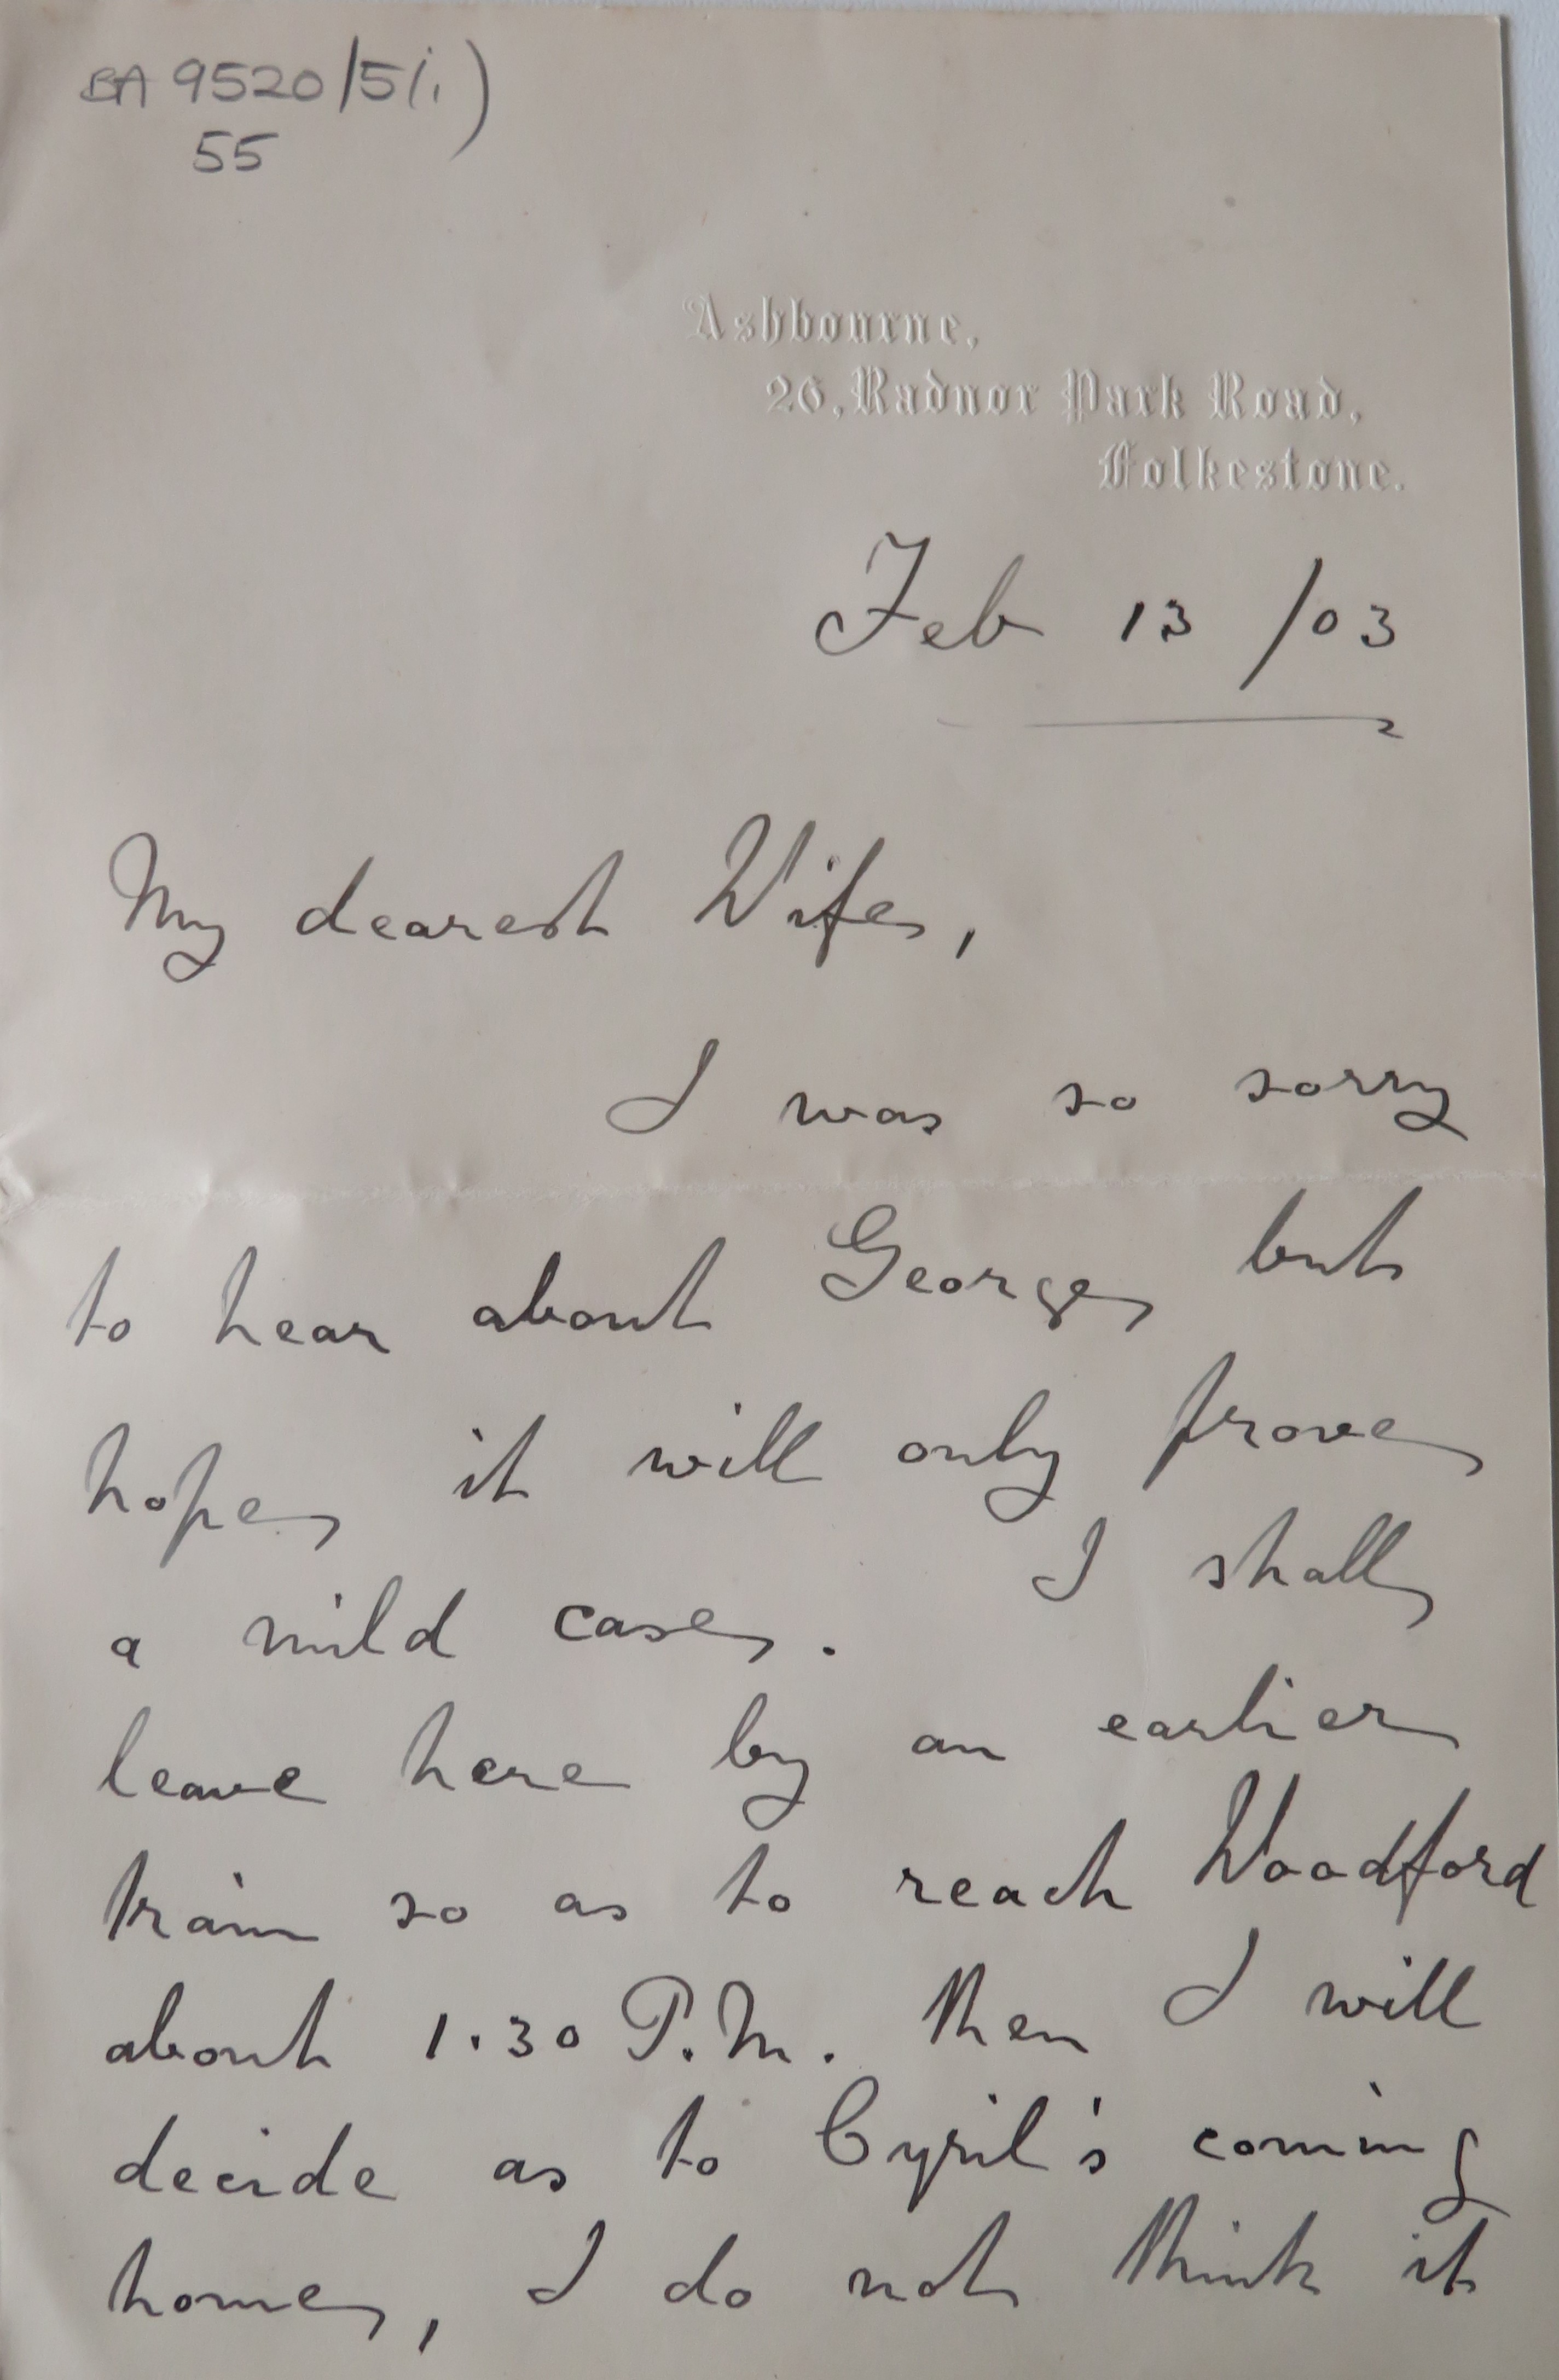 BA 9520/5(i)
55
Ashbourne,
26, Radnor Park Road,
Folkestone.
Feb 13 /03
My dearest Wife,
I was so sorry
to hear about George but
hope it will only prove
a mild case. I shall
leave here by an earlier
train so as to reach Woodford
about 1.30 P.M. then I will
decide as to Cyril's coming
home, I do not think it